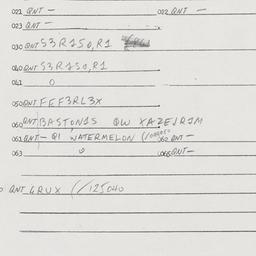 021 QNT — 022 QNT —
023 QNT —
030 QNT 53R7S0,R1
040 QNT 53R7S0,R1
041 0
050 QNT FEF3RL3X
060 QNT BASTON1S QW XAZEJR1M
061 QNT — Q1 WATERMELON 062 QNT —
063 0 065 QNT —
QNT GRUX //125040